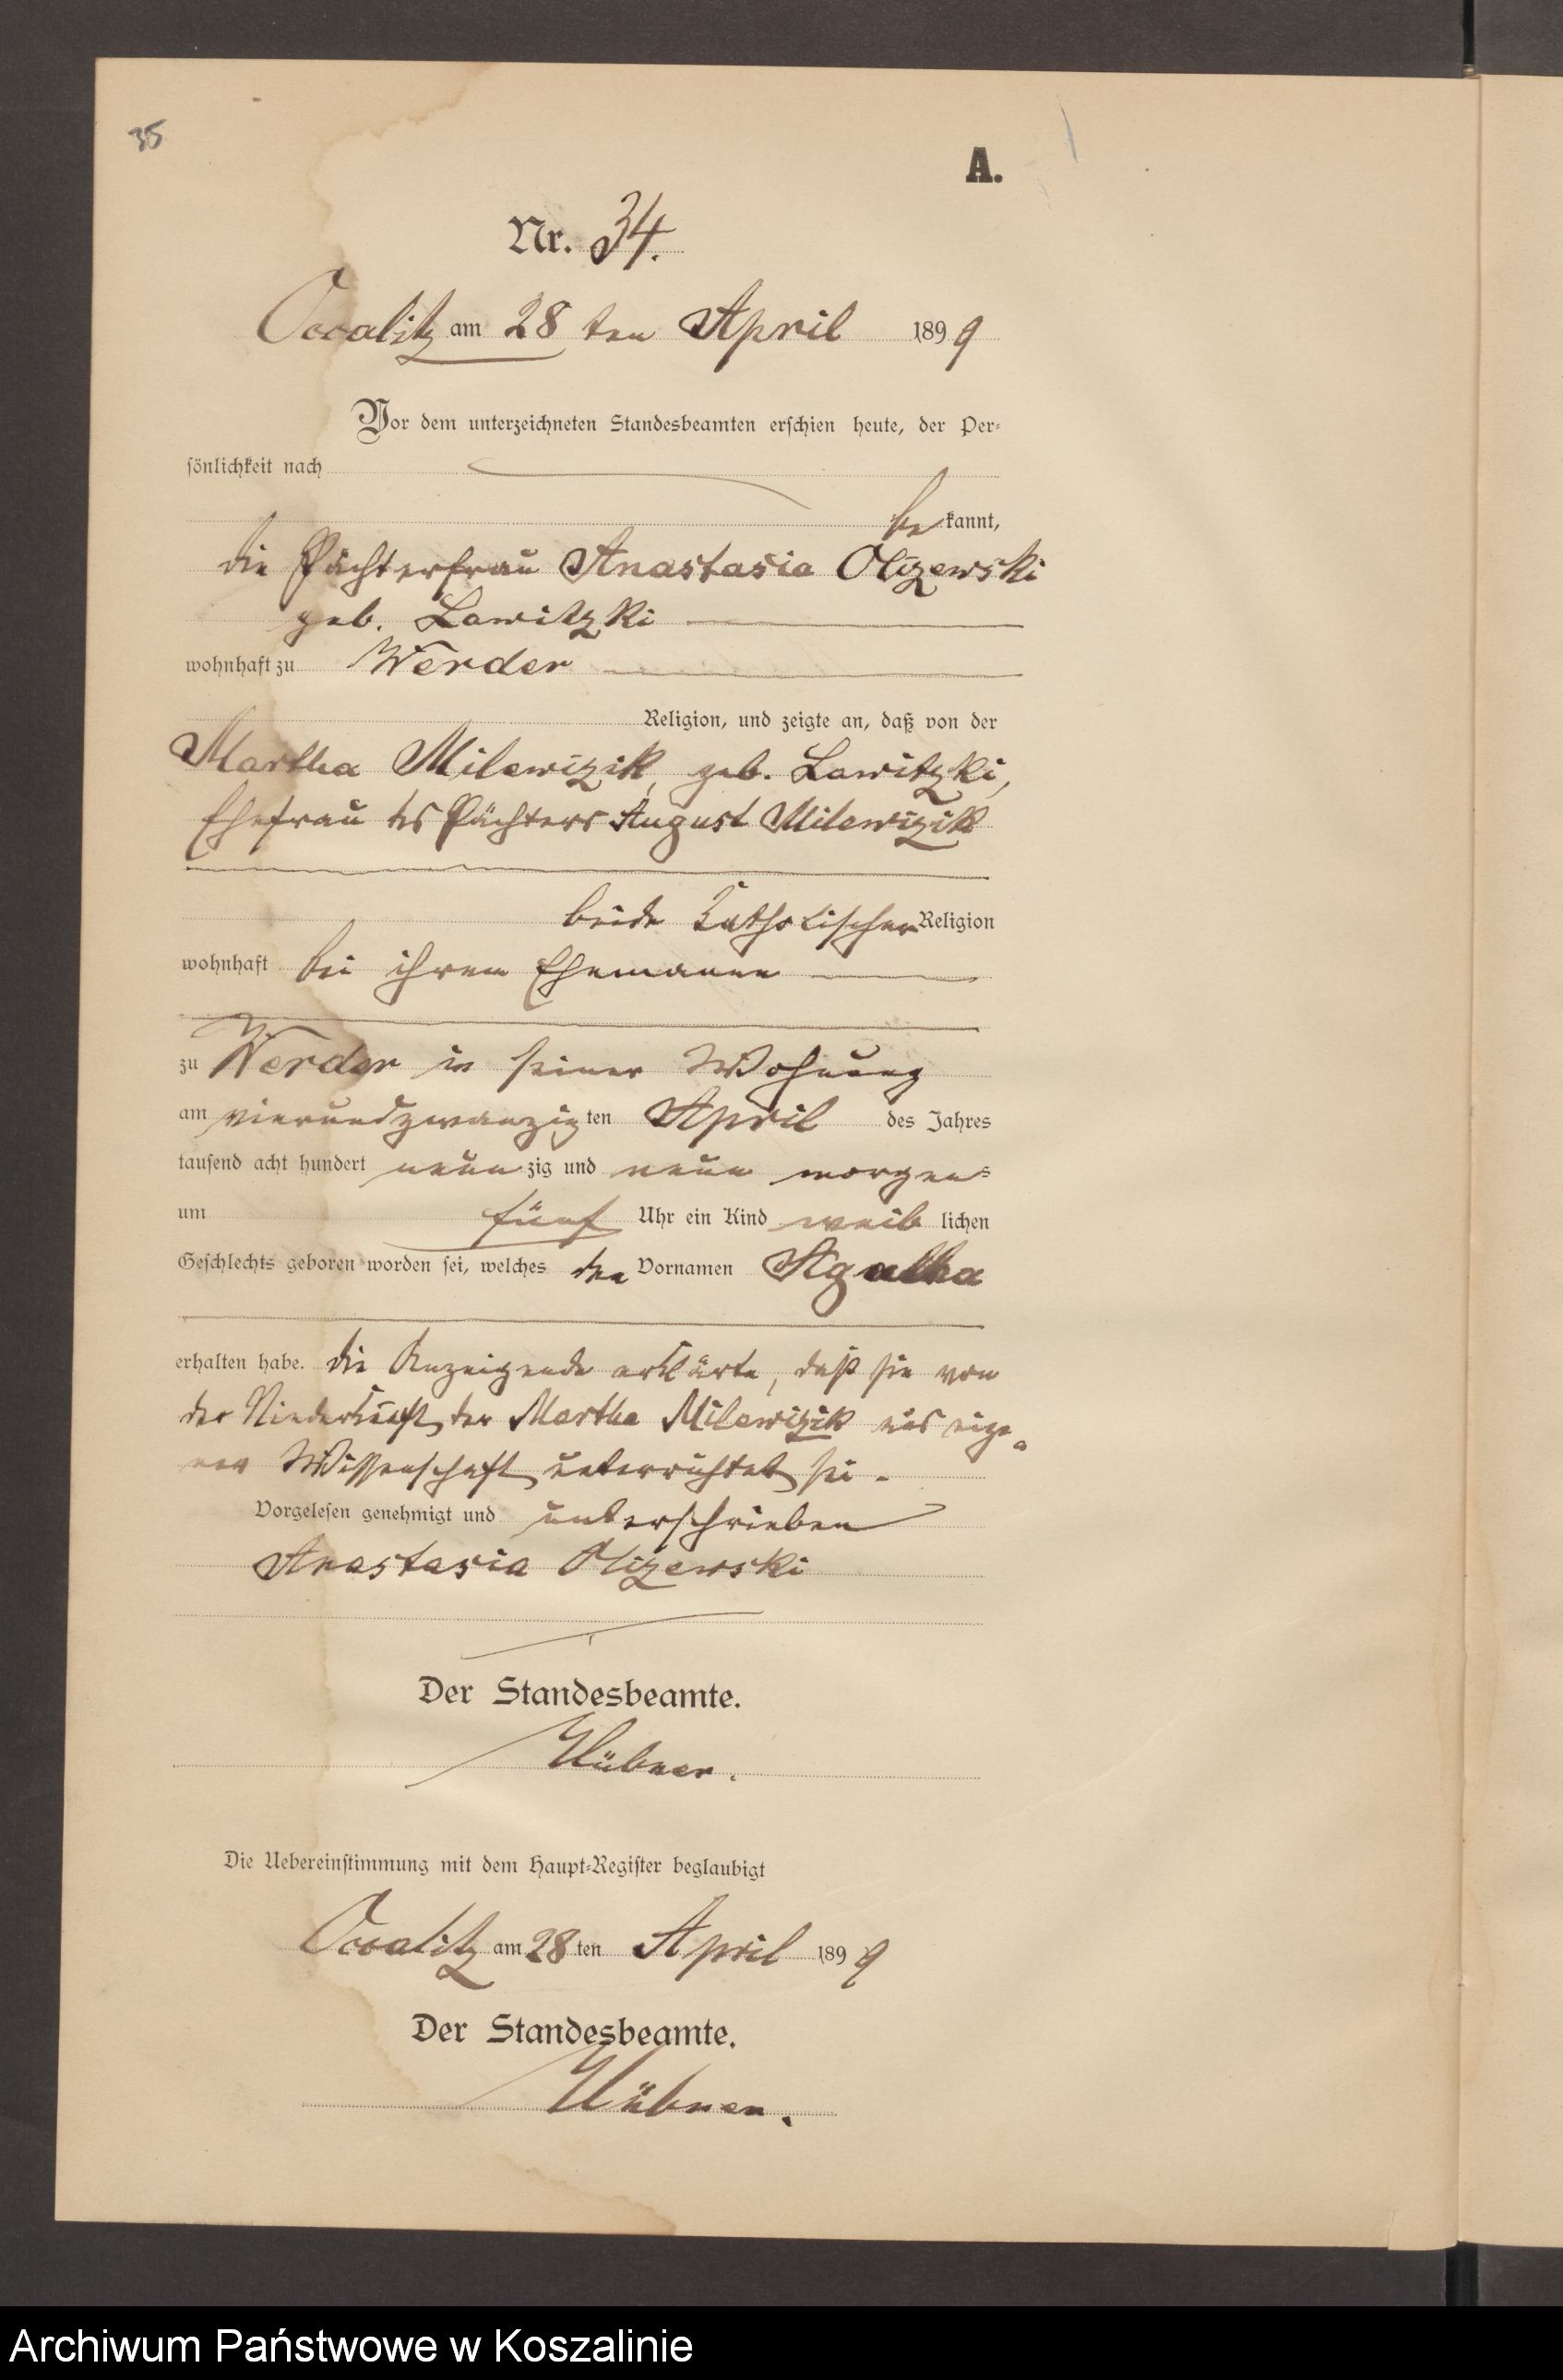 35
A.
Nr. 34.
Occalitz am 28 ten April 1899
Vor dem unterzeichneten Standesbeamten erschien heute, der Per-
sönlichkeit nach
be kannt,
die Pächterfrau Anastasia Olizewski
geb. Lawitzki
wohnhaft zu Werder
Religion, und zeigte an, daß von der
Martha Milewizik, geb. Lawitzki,
Ehefrau des Pächters August Milewizik
beide katholischer Religion
wohnhaft bei ihrem Ehemanne
zu Werder in seiner Wohnung
am vierundzwanzigten April des Jahres
tausend acht hundert neunzig und neun morgen-
um fünf Uhr ein Kind weiblichen
Geschlechts geboren worden sei, welches den Vornamen Agatha
erhalten habe. Die Anzeigende erklärte, daß sie von
der Niederkunft der Martha Milewizik aus eige-
ner Wissenschaft unterrichtet sei.
Vorgelesen genehmigt und unterschrieben
Anastasia Olizewski
Der Standesbeamte.
Hübner.
Die Uebereinstimmung mit dem Haupt-Register beglaubigt
Occalitz am 28 ten April 1899
Der Standesbeamte.
Hübner.
Archiwum Państwowe w Koszalinie